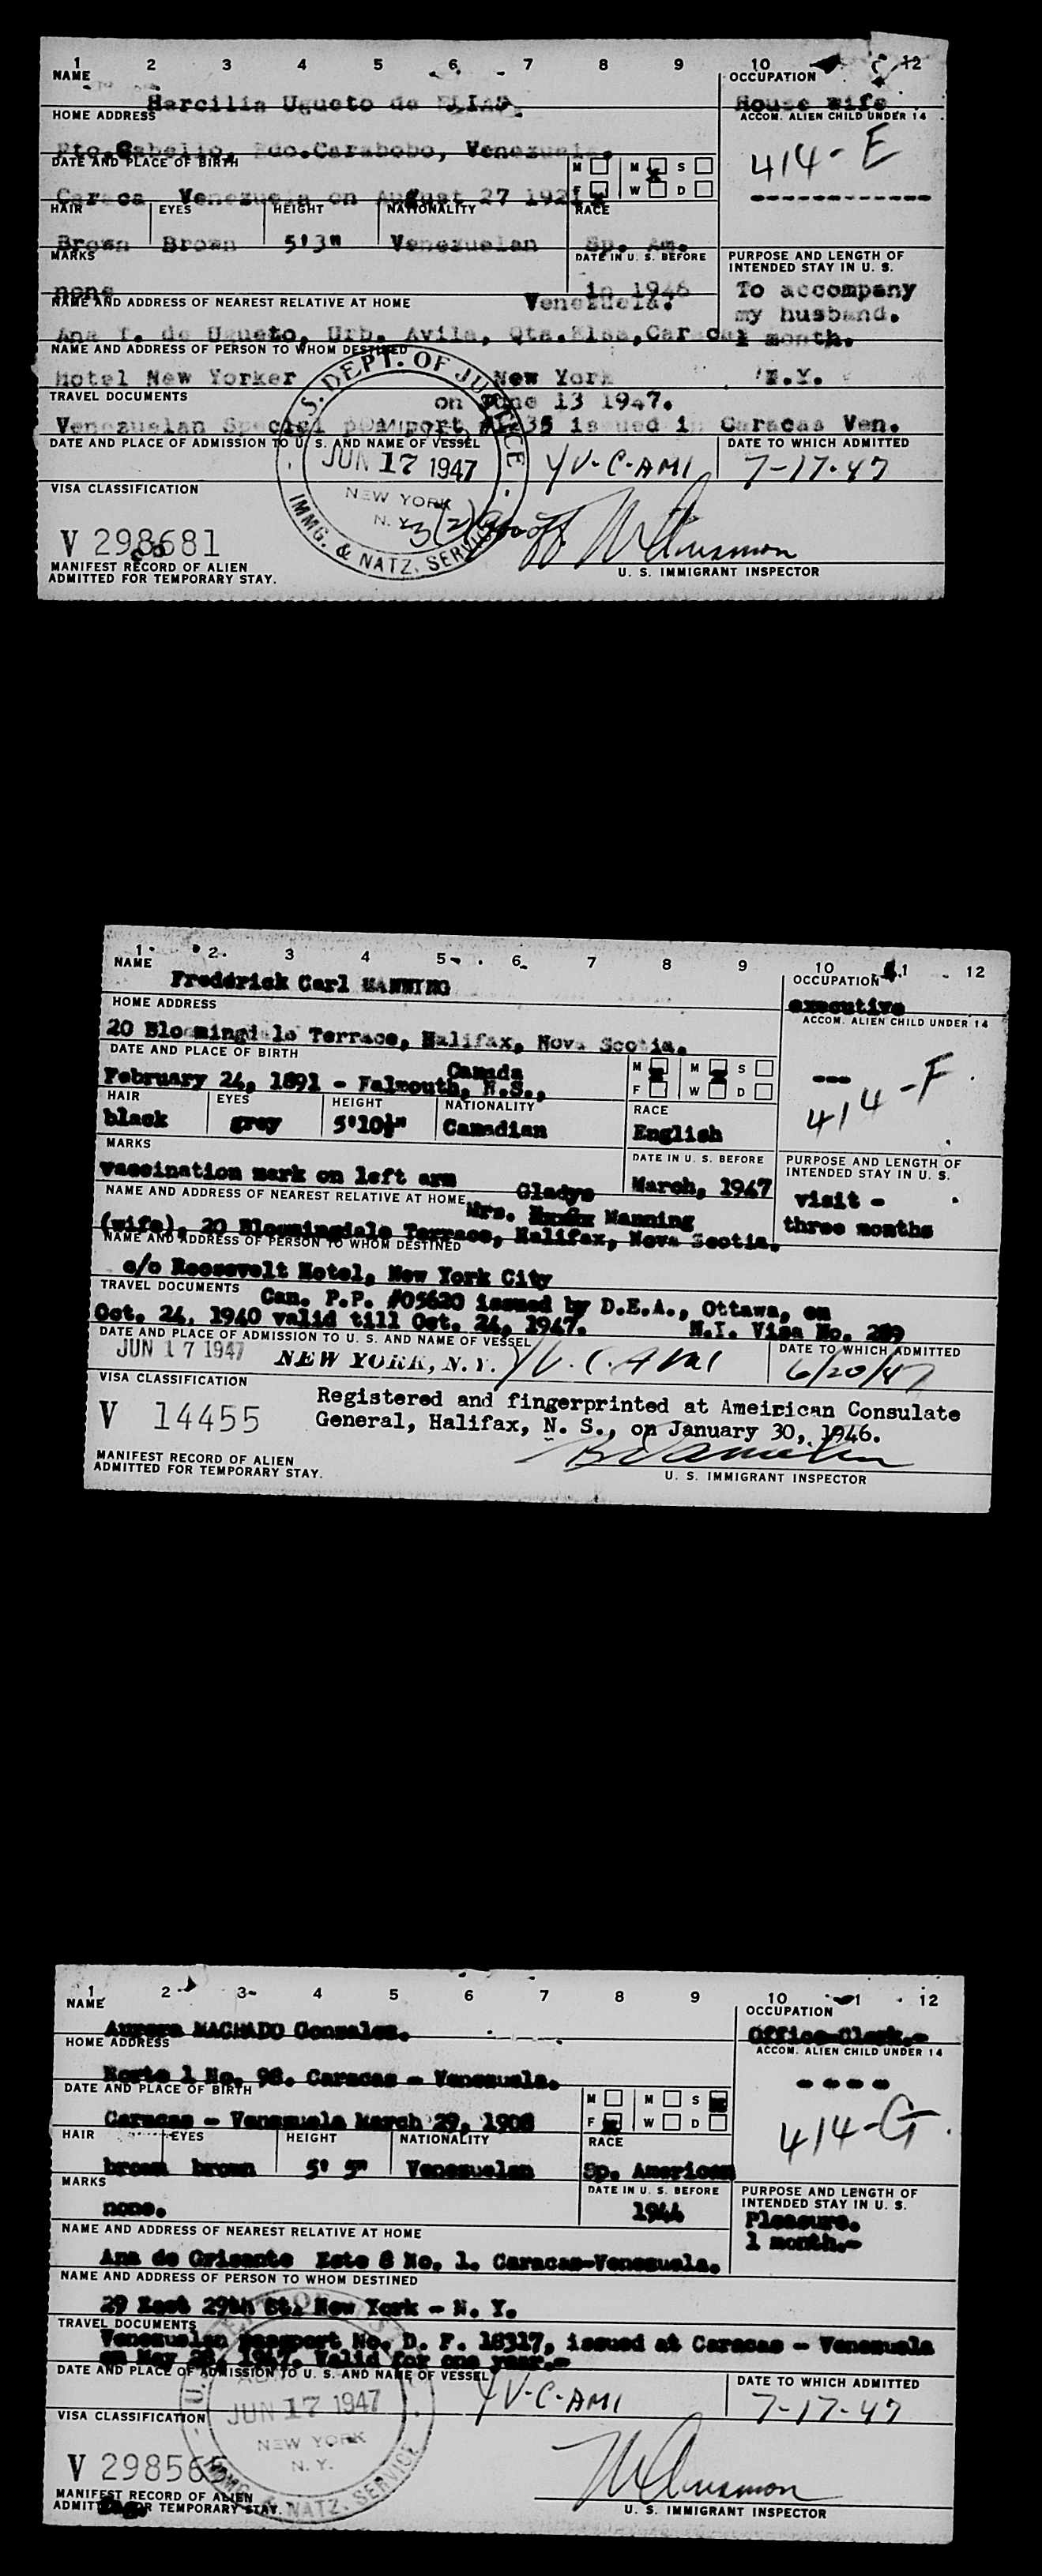 1 2 3 4 5 6 7 8 9 10 12
NAME OCCUPATION
Harcilia Ugueto de ELIAS. House wife
HOME ADDRESS ACCOM. ALIEN CHILD UNDER 14
Pto.Cabello, Edo.Carabobo, Venezuela. 414-E
DATE AND PLACE OF BIRTH M M S
Caraca Venezuela on August 27 1921 F W D
HAIR EYES HEIGHT NATIONALITY RACE
Brown Brown 5'3" Venezuelan Sp. Am.
MARKS DATE IN U. S. BEFORE PURPOSE AND LENGTH OF
INTENDED STAY IN U. S.
none in 1946 To accompany
NAME AND ADDRESS OF NEAREST RELATIVE AT HOME Venezuela. my husband.
Ana T. de Ugueto, Urb. Avila, Qta.Elsa,Caracas 1 month.
NAME AND ADDRESS OF PERSON TO WHOM DESTINED
Hotel New Yorker New York N.Y.
TRAVEL DOCUMENTS on June 13 1947.
Venezuelan Special passport 35 issued in Caracas Ven.
DATE AND PLACE OF ADMISSION TO U. S. AND NAME OF VESSEL DATE TO WHICH ADMITTED
S. DEPT. OF JUSTICE
JUN 17 1947 YV-C-AMI 7-17-47
VISA CLASSIFICATION
NEW YORK
N. Y. 3(2)
IMMG. & NATZ. SERVICE
V 298681
MANIFEST RECORD OF ALIEN
ADMITTED FOR TEMPORARY STAY.
U. S. IMMIGRANT INSPECTOR
1 2 3 4 5 6 7 8 9 10 11 12
NAME OCCUPATION
Frederick Carl MANNING executive
HOME ADDRESS ACCOM. ALIEN CHILD UNDER 14
20 Bloomingdale Terrace, Halifax, Nova Scotia. ---
DATE AND PLACE OF BIRTH Canada M M S
February 24, 1891 - Falmouth, N.S., F W D 414-F
HAIR EYES HEIGHT NATIONALITY RACE
black grey 5'10½" Canadian English
MARKS DATE IN U. S. BEFORE PURPOSE AND LENGTH OF
INTENDED STAY IN U. S.
vaccination mark on left arm March, 1947 visit -
NAME AND ADDRESS OF NEAREST RELATIVE AT HOME Gladys three months
Mrs. Manning
(wife), 20 Bloomingdale Terrace, Halifax, Nova Scotia.
NAME AND ADDRESS OF PERSON TO WHOM DESTINED
c/o Roosevelt Hotel, New York City
TRAVEL DOCUMENTS Can. P.P. #05620 issued by D.E.A., Ottawa, on
Oct. 24, 1940 valid till Oct. 24, 1947. N.I. Visa No. 289
DATE AND PLACE OF ADMISSION TO U. S. AND NAME OF VESSEL DATE TO WHICH ADMITTED
JUN 17 1947 NEW YORK, N.Y. YV.C.AMI 6/20/47
VISA CLASSIFICATION
Registered and fingerprinted at Ameirican Consulate
V 14455 General, Halifax, N. S., on January 30, 1946.
MANIFEST RECORD OF ALIEN
ADMITTED FOR TEMPORARY STAY.
U. S. IMMIGRANT INSPECTOR
1 2 3 4 5 6 7 8 9 10 11 12
NAME OCCUPATION
Aurora MACHADO Gonzales. Office Clerk.-
HOME ADDRESS ACCOM. ALIEN CHILD UNDER 14
Norte 1 No. 98. Caracas - Venezuela. ----
DATE AND PLACE OF BIRTH M M S
Caracas - Venezuela March 29, 1908 F W D 414-G
HAIR EYES HEIGHT NATIONALITY RACE
brown brown 5' 5" Venezuelan Sp. American
MARKS DATE IN U. S. BEFORE PURPOSE AND LENGTH OF
INTENDED STAY IN U. S.
none. 1944 Pleasure.
NAME AND ADDRESS OF NEAREST RELATIVE AT HOME 1 month.-
Ana de Grisante Este 8 No. 1. Caracas-Venezuela.
NAME AND ADDRESS OF PERSON TO WHOM DESTINED
29 East 29th St. New York - N. Y.
TRAVEL DOCUMENTS
Venezuelan passport No. D. F. 18317, issued at Caracas - Venezuela
on May 28, 1947. Valid for one year.-
DATE AND PLACE OF ADMISSION TO U. S. AND NAME OF VESSEL DATE TO WHICH ADMITTED
JUN 17 1947 YV-C-AMI 7-17-47
VISA CLASSIFICATION
NEW YORK
N. Y.
V 298565
IMMG. & NATZ. SERVICE
MANIFEST RECORD OF ALIEN
ADMITTED FOR TEMPORARY STAY.
U. S. IMMIGRANT INSPECTOR